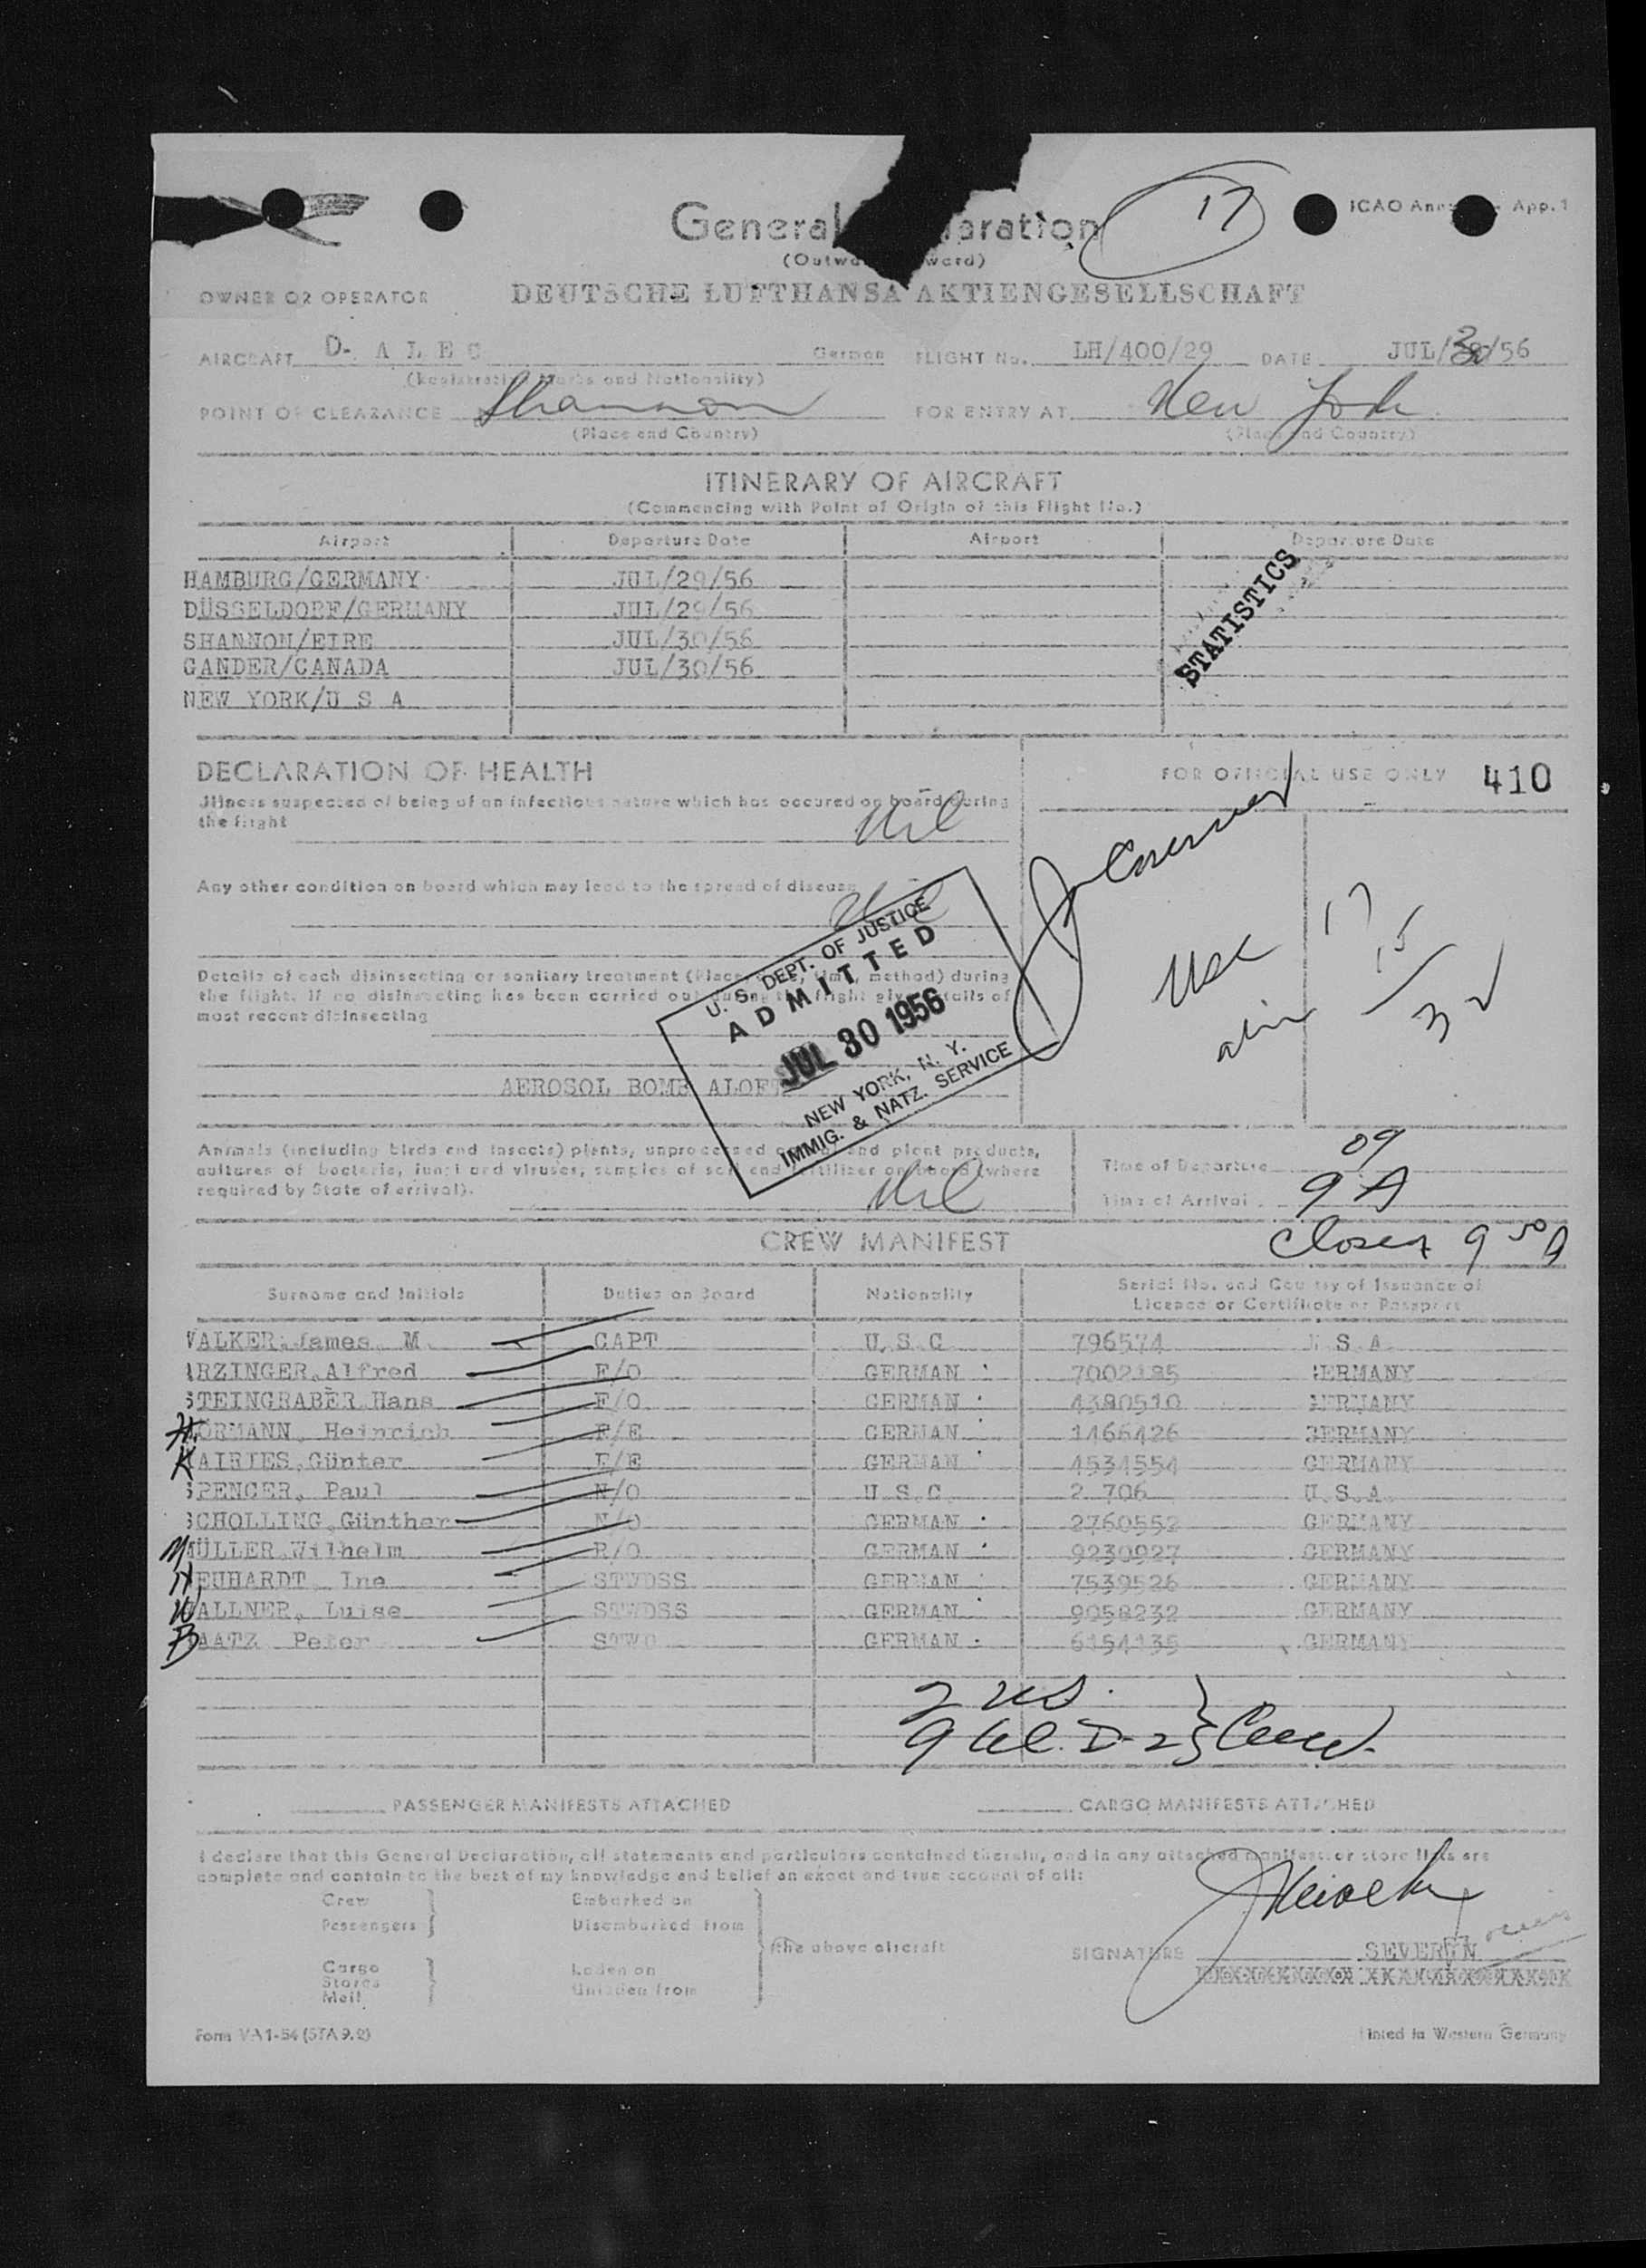 17
ICAO App. 1
General
(Outward)
DEUTSCHE LUFTHANSA AKTIENGESELLSCHAFT
OWNER OR OPERATOR
AIRCRAFT D- A L E C German FLIGHT No. LH/400/29 DATE JUL/30/56
(Registration Marks and Nationality)
POINT OF CLEARANCE Shannon FOR ENTRY AT New York
(Place and Country) (Place and Country)
ITINERARY OF AIRCRAFT
(Commencing with Point of Origin of this Flight No.)
Airport Departure Date Airport Departure Date
HAMBURG/GERMANY JUL/29/56
DÜSSELDORF/GERMANY JUL/29/56
SHANNON/EIRE JUL/30/56
GANDER/CANADA JUL/30/56
NEW YORK/U S A
STATISTICS
DECLARATION OF HEALTH
FOR OFFICIAL USE ONLY 410
Illness suspected of being of an infectious nature which has occured on board during
the flight Nil
Any other condition on board which may lead to the spread of disease
Nil
Details of each disinsecting or sanitary treatment (Place, time, method) during
the flight. If no disinsecting has been carried out during the flight give details of
most recent disinsecting
AEROSOL BOMB ALOFT
U. S. DEPT. OF JUSTICE
ADMITTED
JUL 30 1956
NEW YORK, N. Y.
IMMIG. & NATZ. SERVICE
USC 17
alien 15
32
Animals (including birds and insects) plants, unprocessed animal and plant products,
cultures of bacteria, fungi and viruses, samples of soil and fertilizer on board (where
required by State of arrival). Nil
Time of Departure 09
Time of Arrival 9 A
Closed 9 50 A
CREW MANIFEST
Surname and Initials Duties on Board Nationality Serial No. and Country of Issuance of
Licence or Certificate or Passport
WALKER, James M. CAPT U.S.C 796574 U.S.A.
ARZINGER, Alfred F/O GERMAN 7002185 GERMANY
STEINGRABER Hans F/O GERMAN 4380510 GERMANY
HÖRMANN, Heinrich F/E GERMAN 1466426 GERMANY
KAIRIES, Günter F/E GERMAN 4534554 GERMANY
SPENCER, Paul N/O U.S.C 2 706 U.S.A.
SCHOLLING, Günther N/O GERMAN 2760552 GERMANY
MÜLLER, Wilhelm R/O GERMAN 9230927 GERMANY
NEUHARDT Ine STWDSS GERMAN 7539526 GERMANY
WALLNER, Luise STWDSS GERMAN 9058232 GERMANY
BAATZ Peter STWD GERMAN 6154135 GERMANY
2 US.
9 al. D-2 } Crew.
PASSENGER MANIFESTS ATTACHED CARGO MANIFESTS ATTACHED
I declare that this General Declaration, all statements and particulars contained therein, and in any attached manifests or store lists are
complete and contain to the best of my knowledge and belief an exact and true account of all:
Crew Embarked on
Passengers Disembarked from
the above aircraft
Cargo Loaden on
Stores Unladen from
Mail
SIGNATURE SEVERYN
Form VA 1-54 (STA 9.2)
Printed in Western Germany